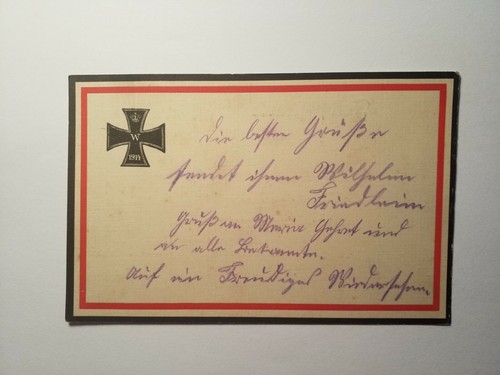 W
1914
Die besten Grüße
sendet ihnen Wilhelm
Friedlein
Gruß an Maria und
an alle Bekannte.
Auf ein Freudiges Wiedersehen.